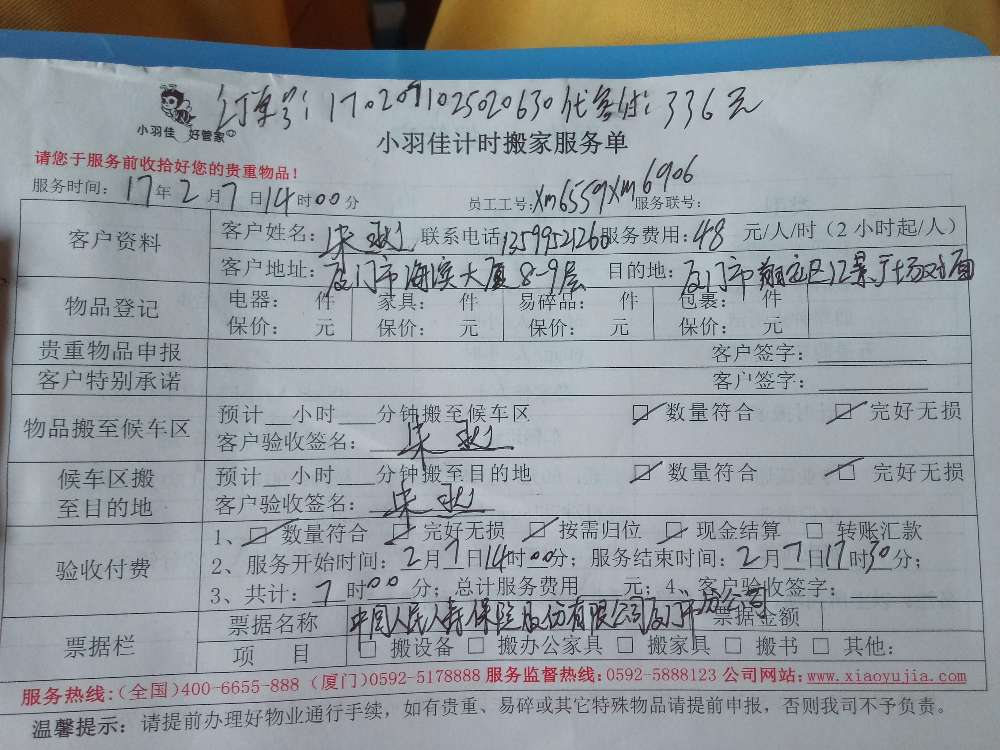 订单号:1702071025020630代客付:336元
小羽佳 好管家
小羽佳计时搬家服务单
请您于服务前收拾好您的贵重物品!
服务时间:17年2月7日14时00分 员工工号:Xm6559Xm6906服务联号:
客户资料 客户姓名:宋 联系电话13599521260服务费用:48 元/人/时(2小时起/人)
客户地址:厦门市海滨大厦8-9层 目的地:厦门市翔安区汇景广场对面
物品登记 电器: 件 家具: 件 易碎品: 件 包裹: 件
保价: 元 保价: 元 保价: 元 保价: 元
贵重物品申报 客户签字:
客户特别承诺 客户签字:
物品搬至候车区 预计__小时____分钟搬至候车区 ☑ 数量符合 ☑ 完好无损
客户验收签名:宋
候车区搬至目的地 预计__小时____分钟搬至目的地 ☑ 数量符合 ☑ 完好无损
客户验收签名:宋
验收付费 1、☑ 数量符合 ☑ 完好无损 ☑ 按需归位 ☑ 现金结算 □ 转账汇款
2、服务开始时间:2月7日14时00分;服务结束时间:2月7日17时30分;
3、共计:7时00分;总计服务费用 元;4、客户验收签字:
票据栏 票据名称 中国人民人寿保险股份有限公司厦门市分公司 票据金额
项 目 □ 搬设备 □ 搬办公家具 □ 搬家具 □ 搬书 □ 其他:
服务热线:(全国)400-6655-888 (厦门)0592-5178888 服务监督热线:0592-5888123 公司网站:www.xiaoyujia.com
温馨提示:请提前办理好物业通行手续,如有贵重、易碎或其它特殊物品请提前申报,否则我司不予负责。